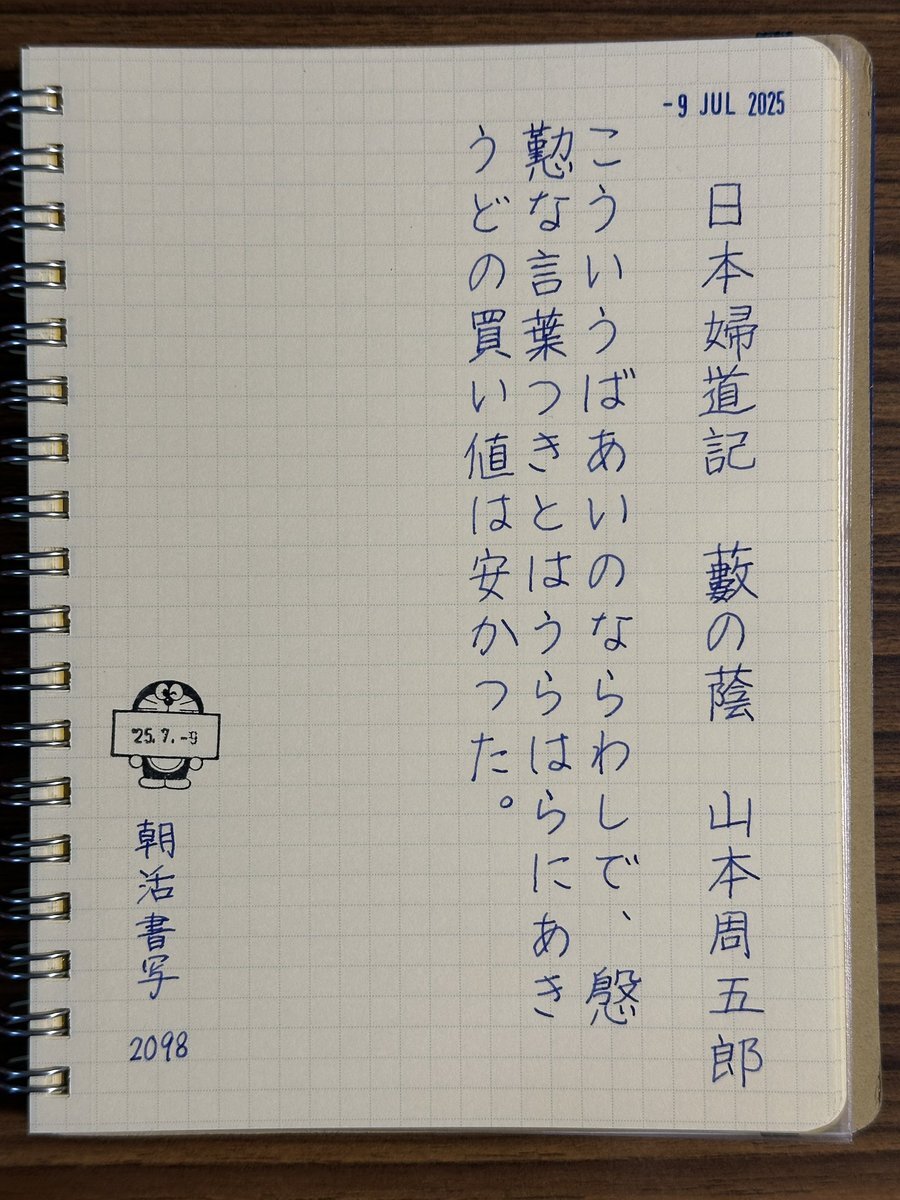 -9 JUL 2025
日本婦道記　藪の蔭　山本周五郎
こういうばあいのならわしで、慇
懃な言葉つきとはうらはらにあき
うどの買い値は安かった。
'25.7.-9
朝活書写　2098